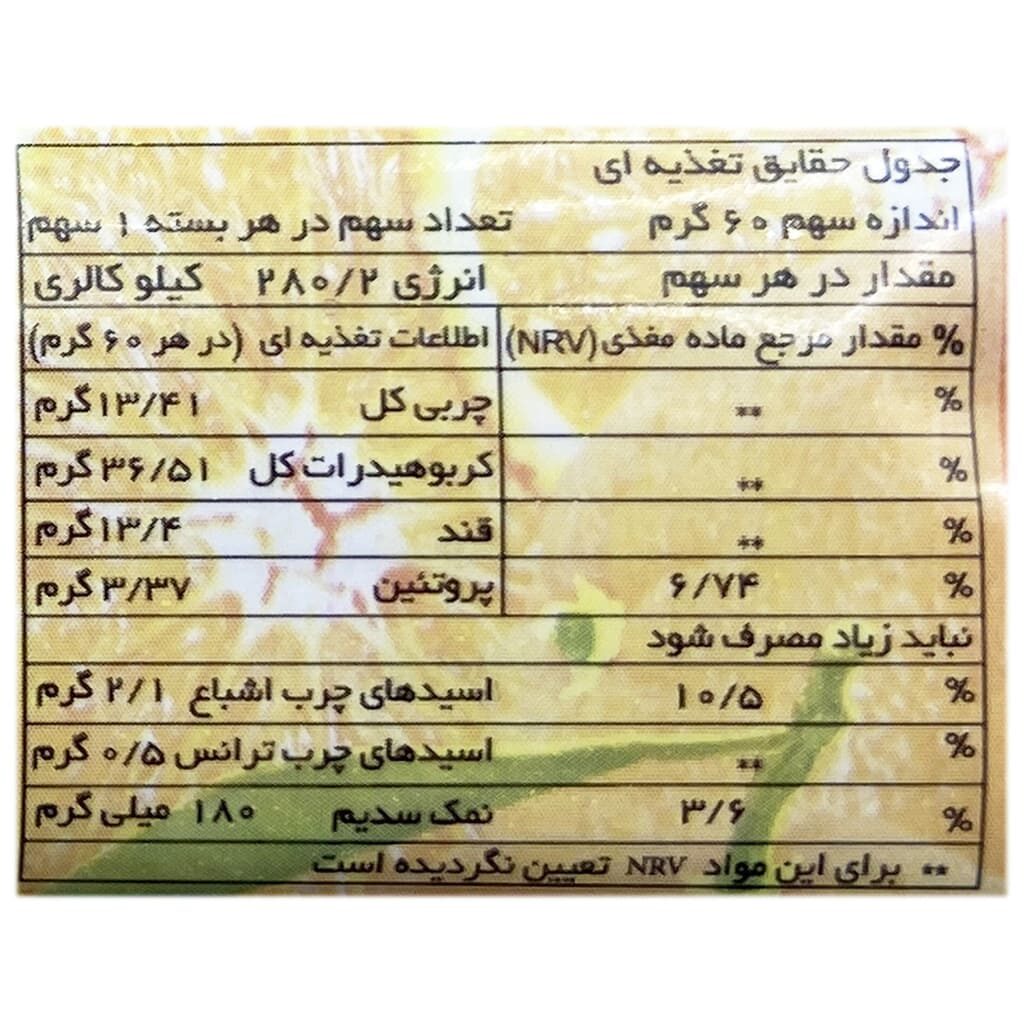 جدول حقایق تغذیه ای
اندازه سهم ۶۰ گرم تعداد سهم در هر بسته ۱ سهم
مقدار در هر سهم انرژی ۲۸۰/۲ کیلو کالری
% مقدار مرجع ماده مغذی (NRV) اطلاعات تغذیه ای (در هر ۶۰ گرم)
% ** چربی کل ۱۳/۴۱ گرم
% ** کربوهیدرات کل ۳۶/۵۱ گرم
% ** قند ۱۳/۴ گرم
% ۶/۷۴ پروتئین ۳/۳۷ گرم
نباید زیاد مصرف شود
% ۱۰/۵ اسیدهای چرب اشباع ۲/۱ گرم
% ** اسیدهای چرب ترانس ۰/۵ گرم
% ۳/۶ نمک سدیم ۱۸۰ میلی گرم
** برای این مواد NRV تعیین نگردیده است